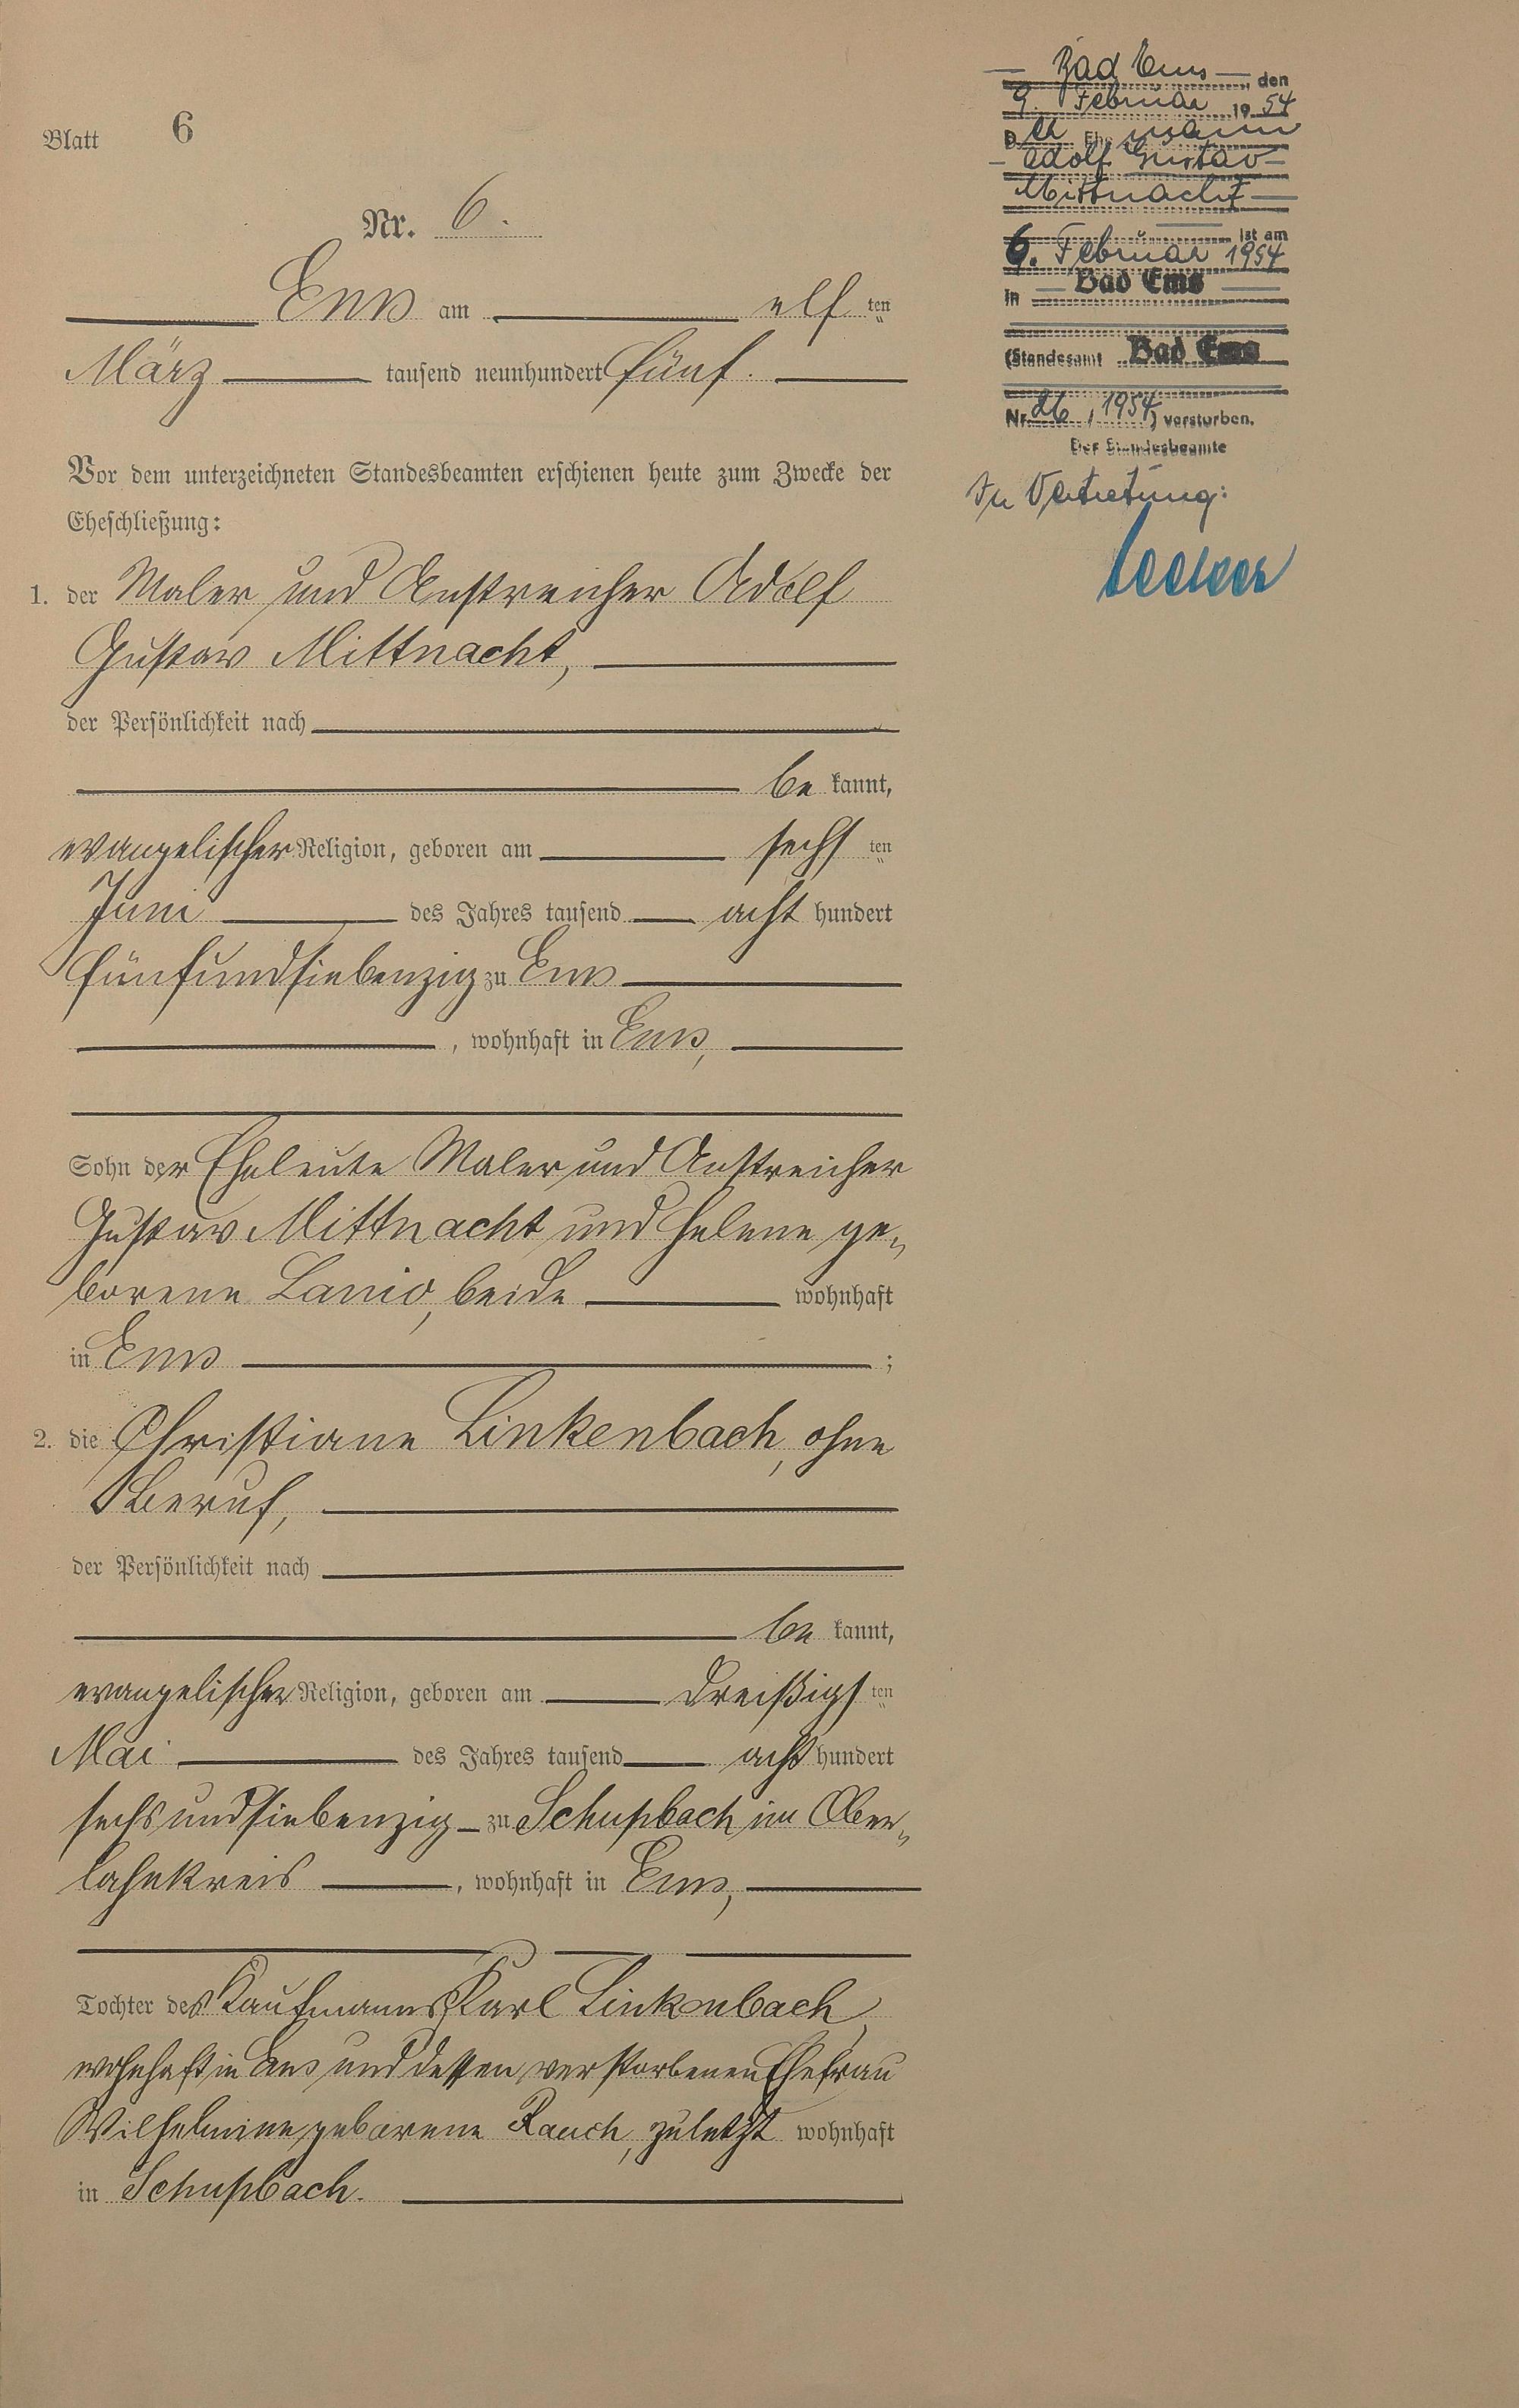 Blatt 6
Nr. 6.
Ems am elf ten
März tausend neunhundert fünf.
Vor dem unterzeichneten Standesbeamten erschienen heute zum Zwecke der
Eheschließung:
1. der Maler und Anstreicher Adolf
Gustav Mittnacht,
der Persönlichkeit nach
be kannt,
evangelischer Religion, geboren am sechs ten
Juni des Jahres tausend acht hundert
fünfundsiebenzig zu Ems
, wohnhaft in Ems,
Sohn der Eheleute Maler und Anstreicher
Gustav Mittnacht und Helene ge-
borene Lanio, beide wohnhaft
in Ems ;
2. die Christiane Linkenbach, ohne
Beruf,
der Persönlichkeit nach
be kannt,
evangelischer Religion, geboren am dreißigs ten
Mai des Jahres tausend acht hundert
sechsundsiebenzig zu Schupbach im Ober-
lahnkreis , wohnhaft in Ems,
Tochter des Kaufmanns Karl Linkenbach,
wohnhaft in Ems und dessen verstorbenen Ehefrau
Wilhelmine, geborene Rauch, zuletzt wohnhaft
in Schupbach.
Bad Ems, den
9. Februar 1954
Der Ehemann
Adolf Gustav
Mittnacht
ist am
6. Februar 1954
in Bad Ems
(Standesamt Bad Ems
Nr. 26 / 1954) verstorben.
Der Standesbeamte
In Vertretung: